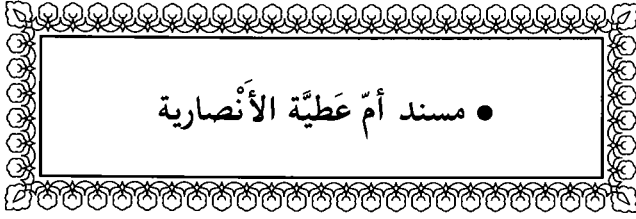 ● مسند أمّ عَطيَّة الأَنْصارية